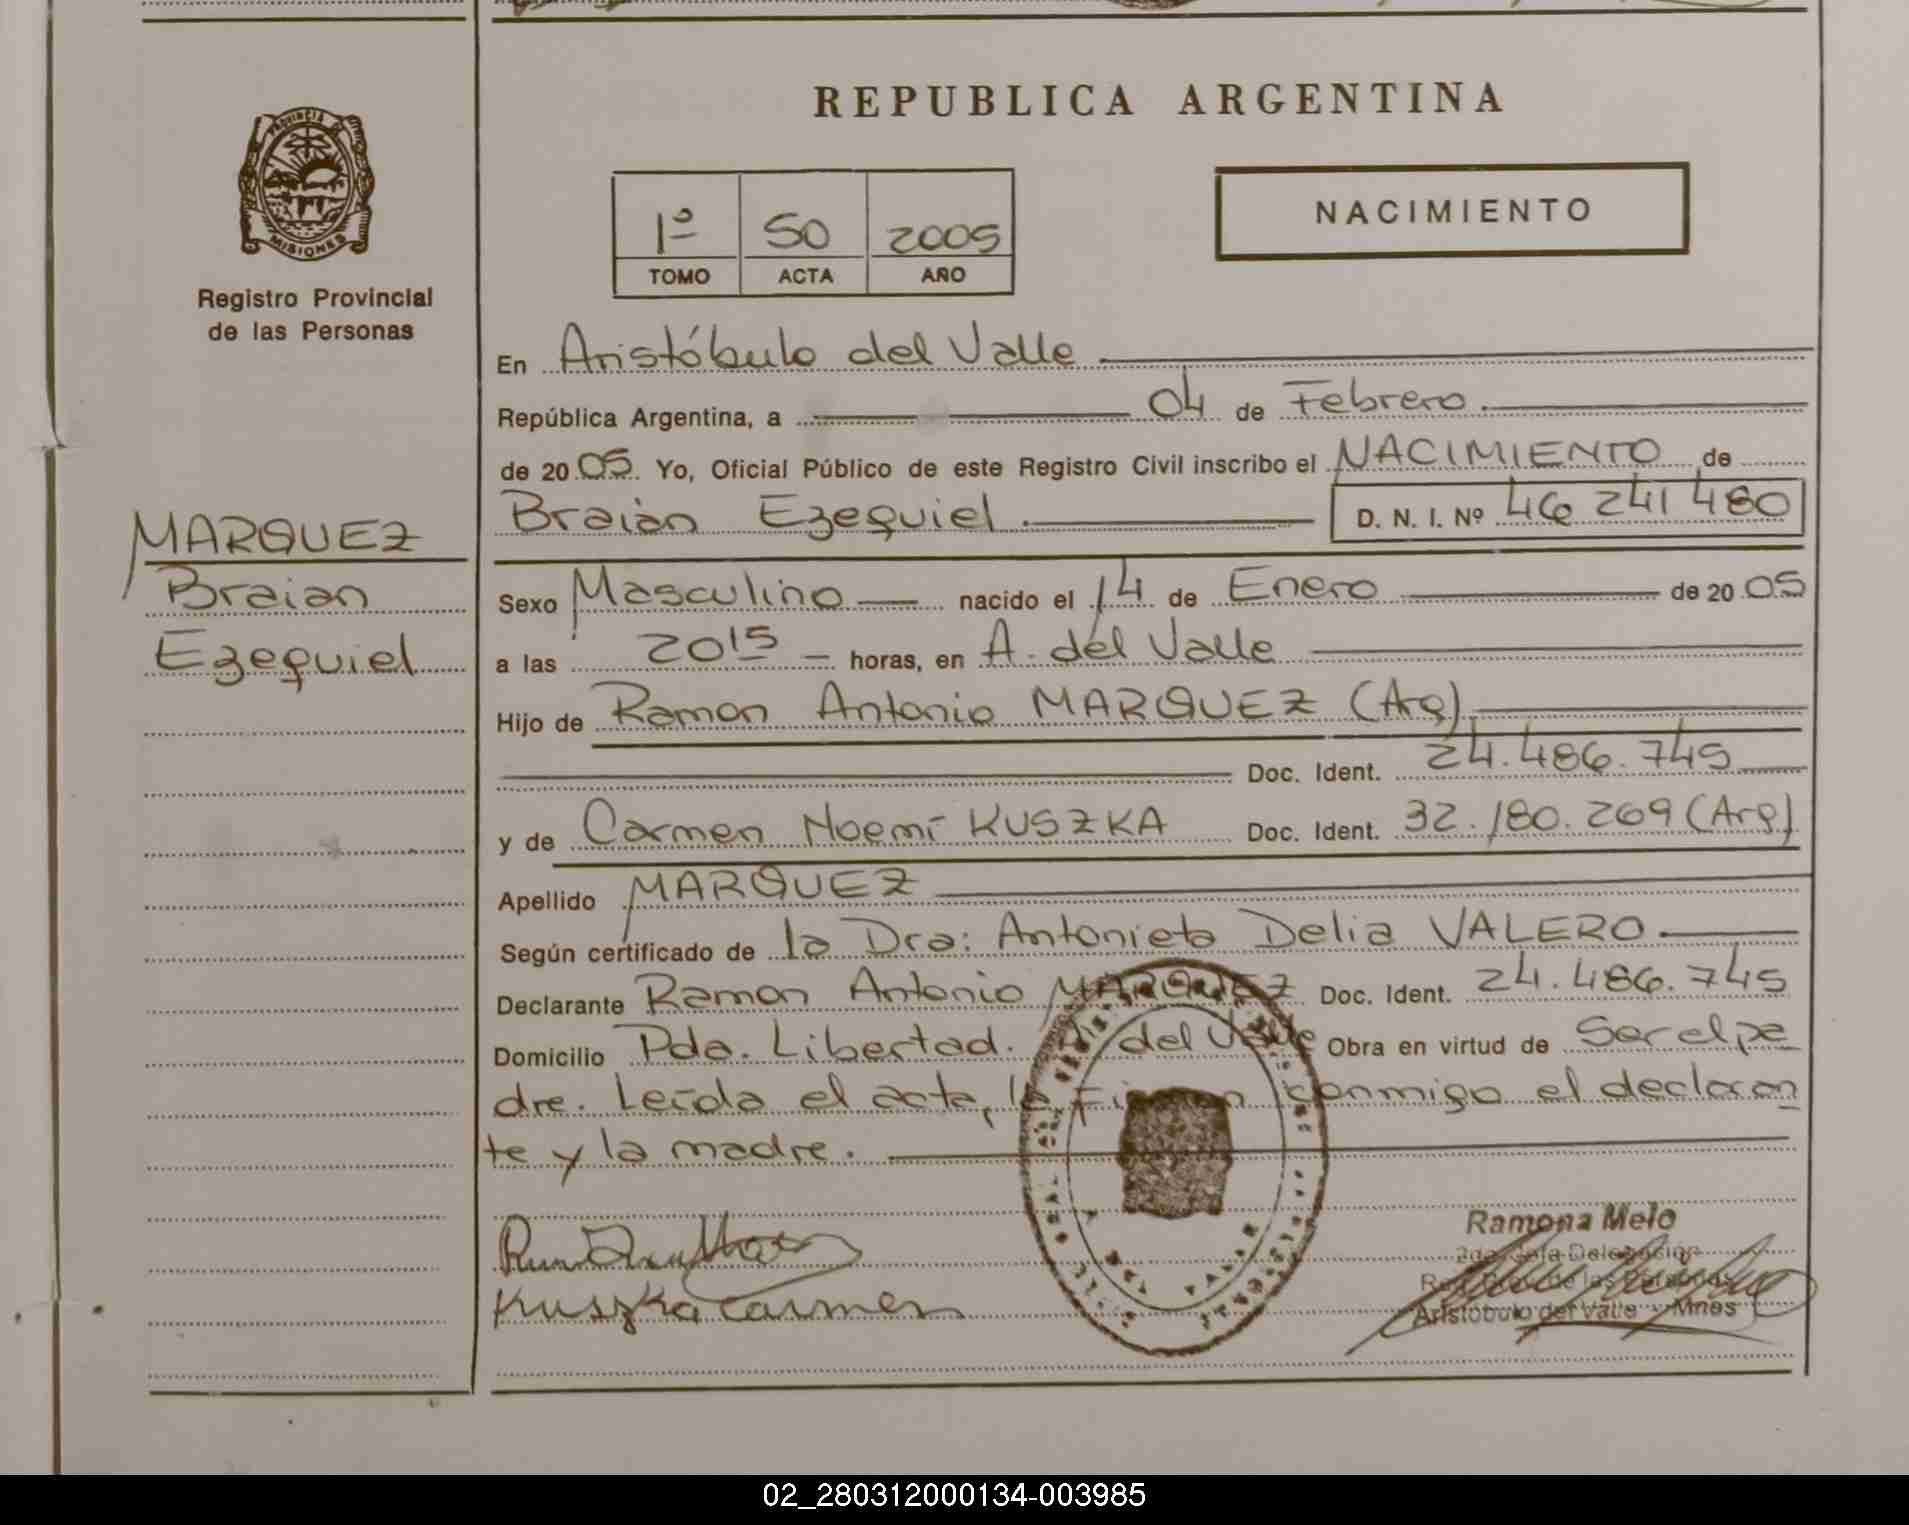 REPUBLICA ARGENTINA
PROVINCIA DE
MISIONES
Registro Provincial
de las Personas
1º 50 2005
TOMO ACTA AÑO
NACIMIENTO
En Aristóbulo del Valle
República Argentina, a 04 de Febrero
de 2005 Yo, Oficial Público de este Registro Civil inscribo el NACIMIENTO de
Braian Ezequiel D. N. I. Nº 46 241 480
MARQUEZ
Braian
Ezequiel
Sexo Masculino nacido el 14 de Enero de 2005
a las 20 15 horas, en A. del Valle
Hijo de Ramon Antonio MARQUEZ (Arg)
Doc. Ident. 24.486.745
y de Carmen Noemí KUSZKA Doc. Ident. 32.180.269 (Arg)
Apellido MARQUEZ
Según certificado de la Dra: Antonieta Delia VALERO
Declarante Ramon Antonio MARQUEZ Doc. Ident. 24.486.745
Domicilio Pdo. Libertad. A. del Valle Obra en virtud de Ser el pa
dre. Leída el acta, la firman conmigo el declaran
te y la madre.
Kuszka Carmen
Ramona Melo
Delegación
Reg. Prov. de las Personas
Aristóbulo del Valle - Mnes
02_280312000134-003985